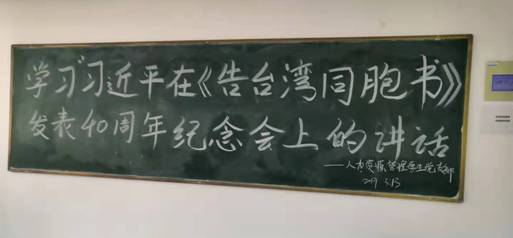 学习习近平在《告台湾同胞书》
发表40周年纪念会上的讲话
——人力资源管理学生党支部
2019 3.13